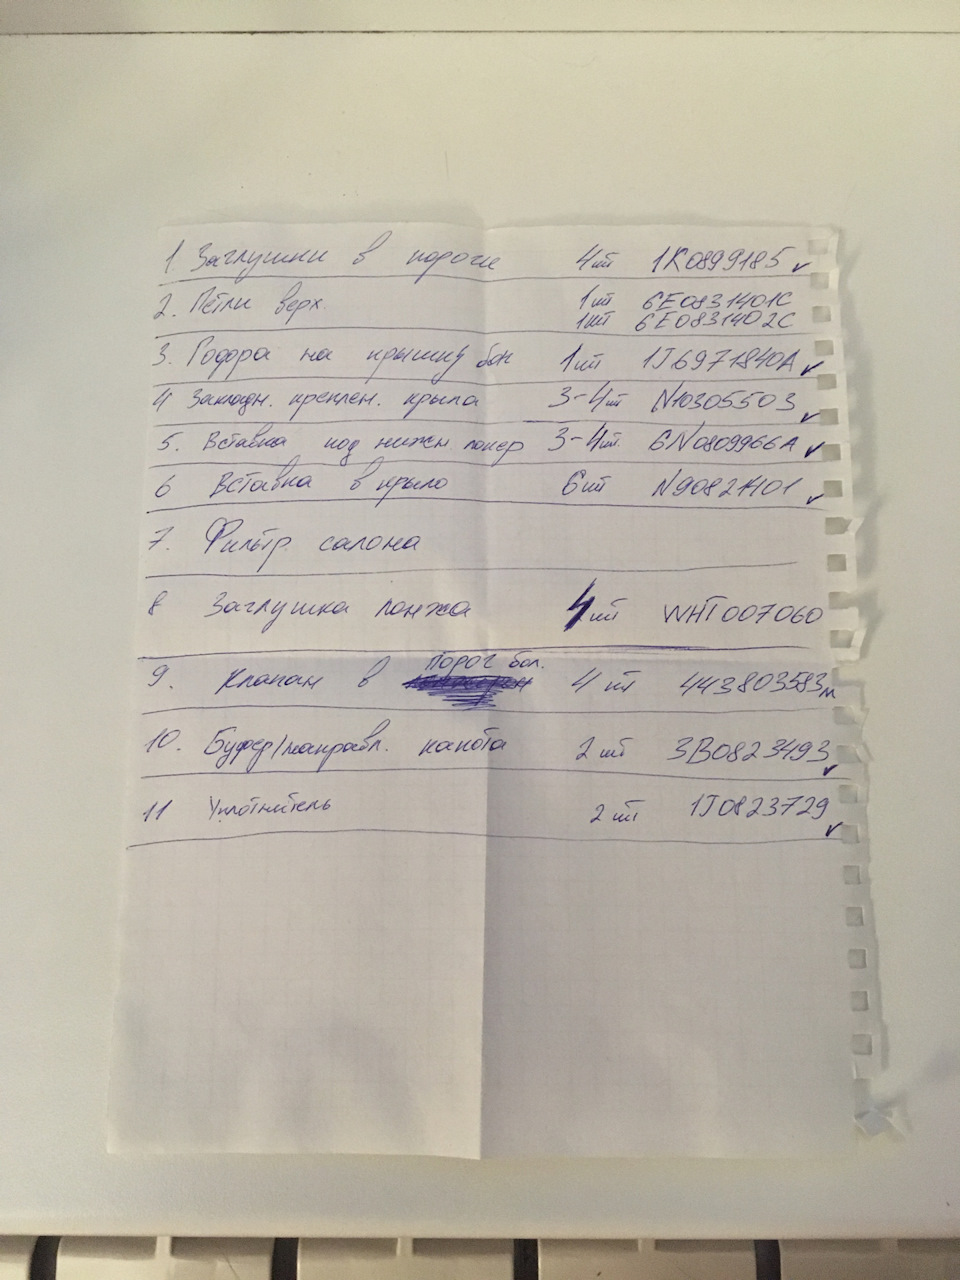 1. Заглушки в пороги 4шт 1K0899185 ✓
2. Петли верх. 1шт 6E0831401C
1шт 6E0831402C
3. Гофра на крышку баг 1шт 1J6971840A ✓
4 Закладн. креплен. крыла 3-4шт N10305503 ✓
5. Вставка под нижн. 3-4шт. 6N0809966A ✓
6 Вставка в крыло 6шт N90821401 ✓
7. Фильтр салона
8 Заглушка лонжа 4шт WHT007060
порог бол.
9. Клапан в 4шт 443803583м
10. Буфер/направл. капота 2шт 3B0823493 ✓
11 Уплотнитель 2шт 1J0823729 ✓